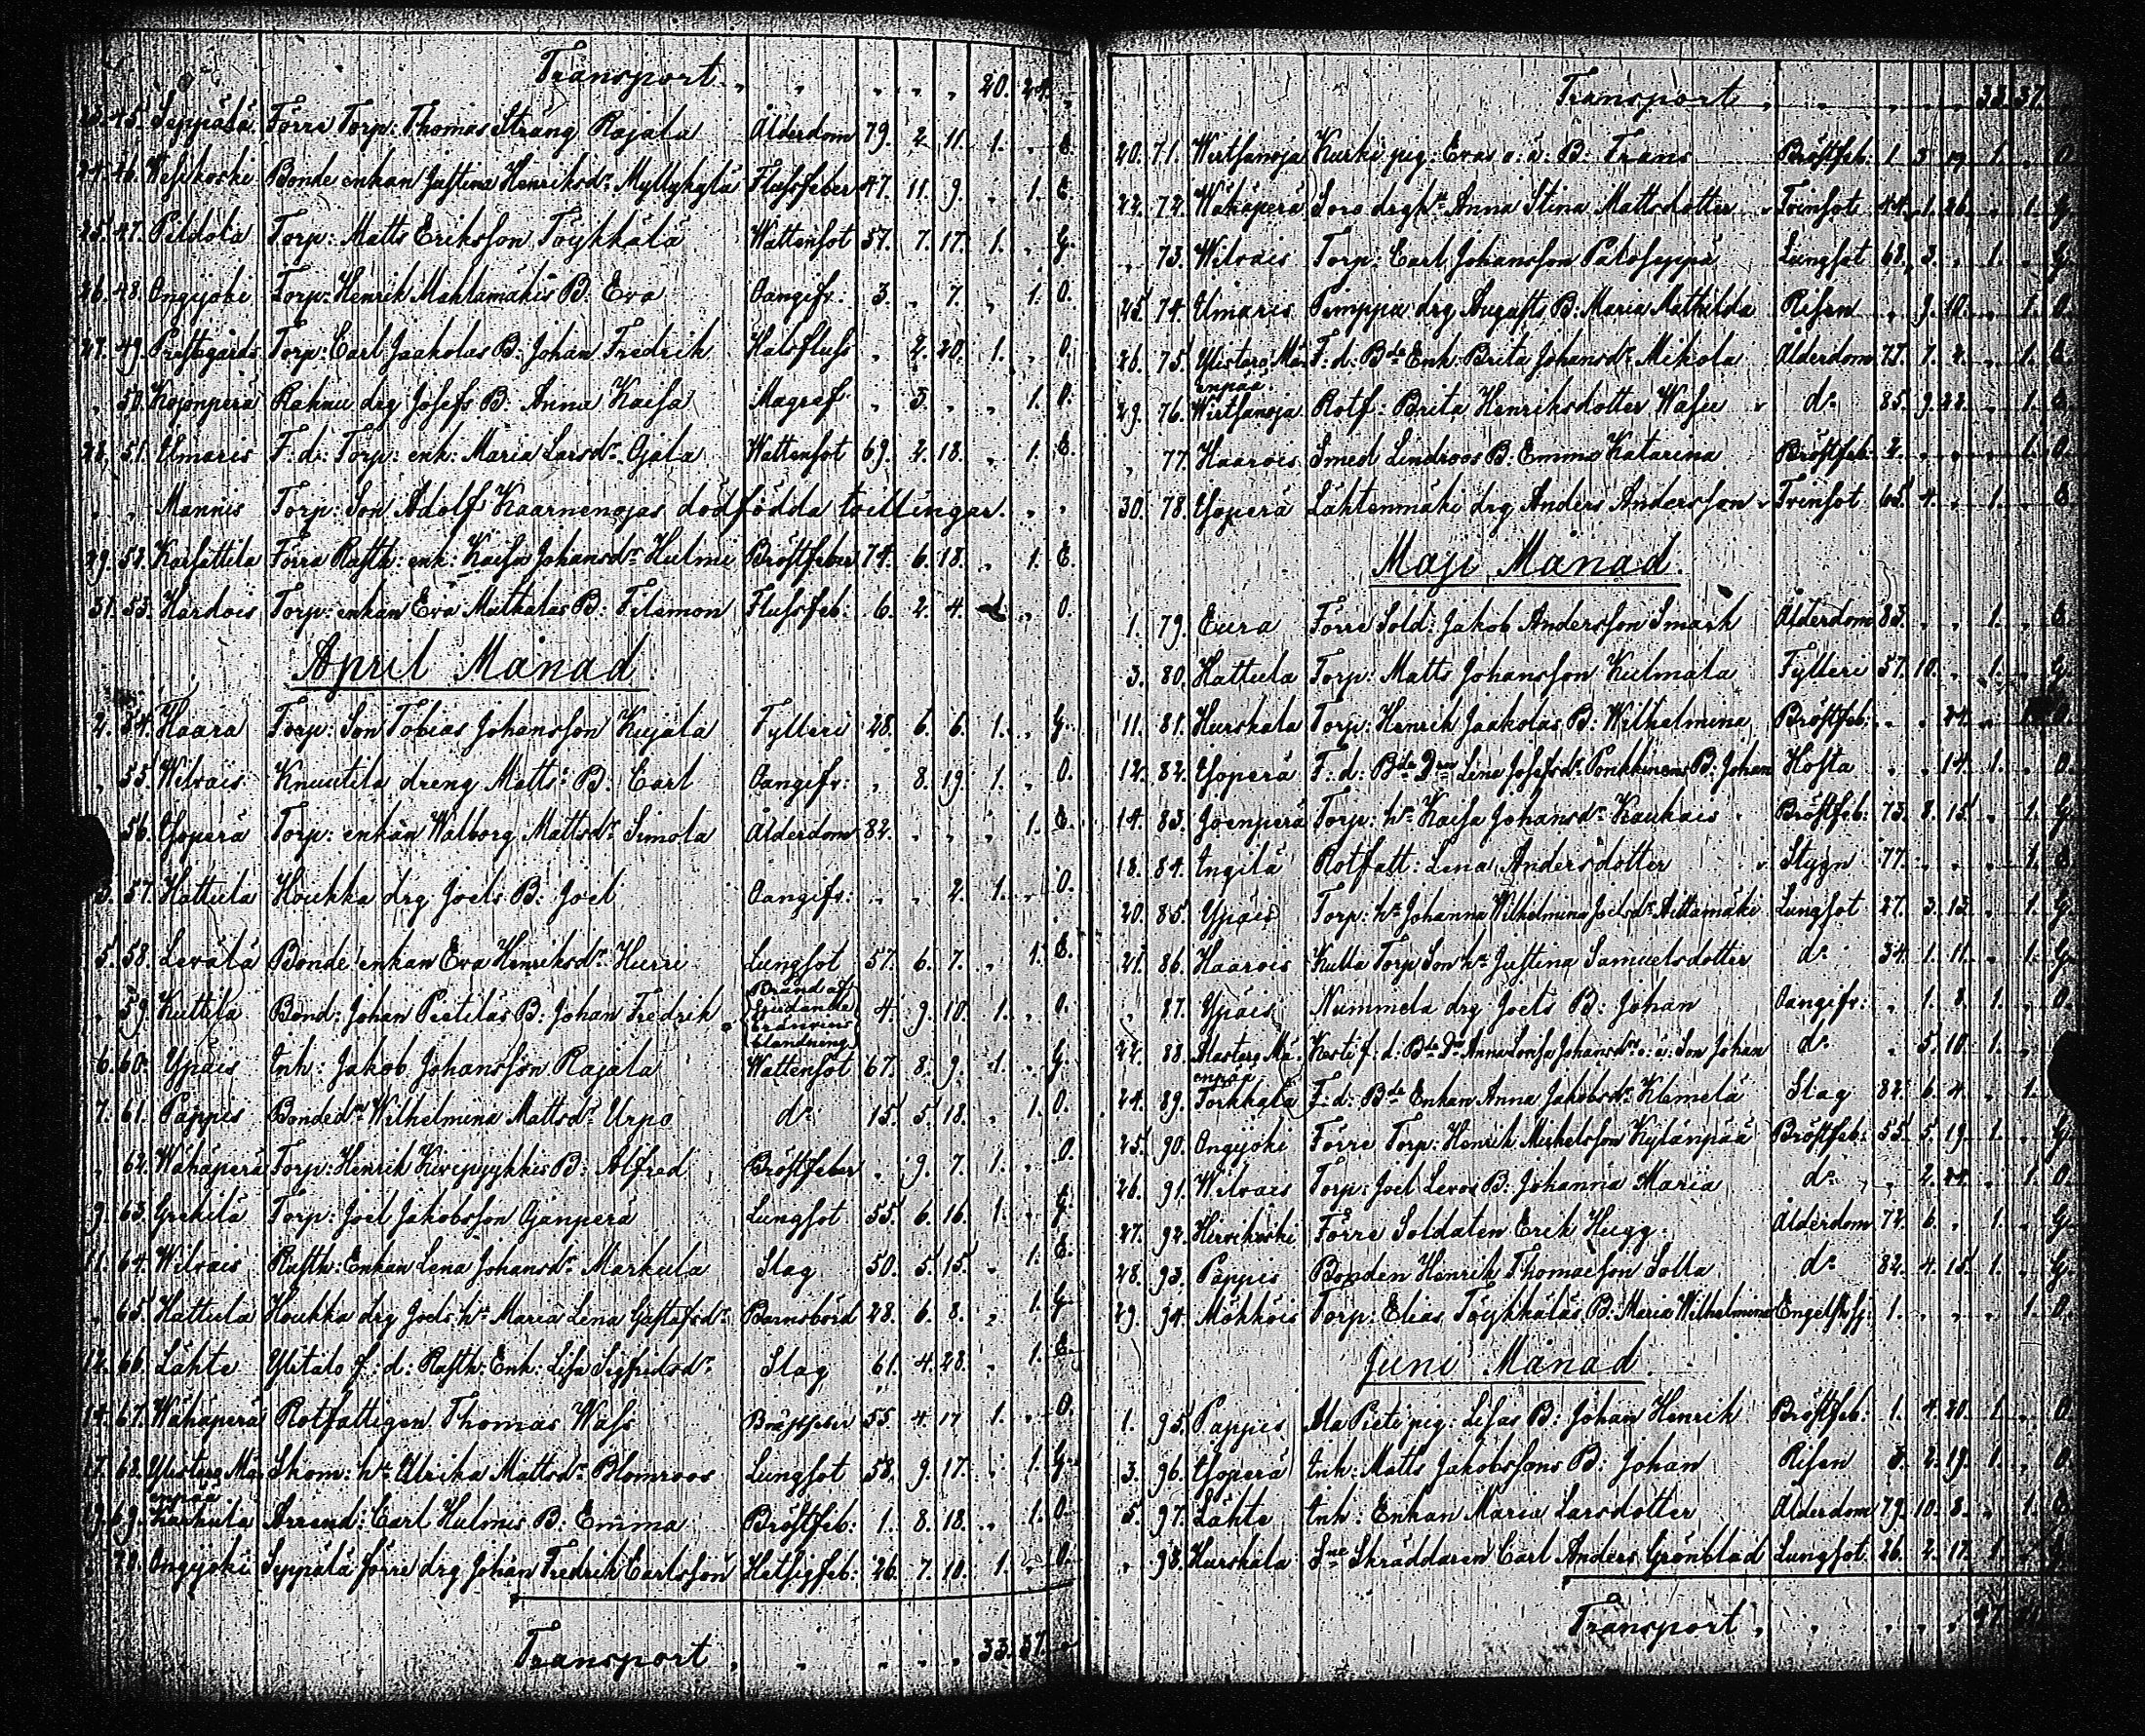 Transport „ „ „ „ „ 20. 24. „
23. 45. Seppälä Förre Torp: Thomas Sträng Rajala Ålderdom 79. 2 11. 1. „ E.
24. 46. Wesikoski Bonde enkan Justina Henriksdr Myllykylä Flussfeber 47. 11. 9. „ 1. E.
25. 47. Peldola Torp: Matts Eriksson Töykkälä Wattensot 57. 7. 17. 1. „ G.
26. 48. Ongijoki Torp: Henrik Mahlamäkis B: Eva Oangifv: 3. „ 7. „ 1. O.
27. 49. Prestegårds Torp: Carl Jaakolas B: Johan Fredrik Halsfluss „ 2. 20. 1. „ O.
„ 50. Kojonperä Rahau drg Josefs B: Anna Kaisa Magref „ 5. „ „ 1. O.
28. 51. Utmaris F. d. Torp: enk: Maria Larsdr Ojala Wattensot 69. 2. 18. „ 1. E.
„ „ Mannis Torp: Son Adolf Kaarnenojas dödfödda tvillingar. „ „
29. 52. Karsattila Förra Rusth: enk: Kaisa Johansdr Hulmi Bröstfeber 74. 6. 18. „ 1. E.
31. 53. Hardois Torp: enkan Eva Mathalas B: Filamon Flussfeb: 6. 2. 4. „ O.
April Månad.
2. 54. Haara Torp: Son Tobias Johansson Kujala Fylleri 28. 6. 6. 1. „ G.
„ 55. Wilvais Knuutila dreng Matts: B: Carl Oangifv: „ 8. 19. 1. „ O.
„ 56. Isoperä Torp: enkan Walborg Mattsdr Simola Ålderdom 82. „ „ „ 1. E.
3. 57. Hattula Houkka drg Joels B: Joel Oangifv: „ „ 2. 1. „ O.
5. 58. Levälä Bonde enkan Eva Henriksdr Hurri Lungsot 57. 6. 7. „ 1. E.
„ 59. Kuttila Bond: Johan Pietiläs B: Johan Fredrik Brand af sjudande bränvins blandning 4. 9. 10. 1. „ O.
6. 60. Ypäis Inh: Jakob Johansson Rajala Wattensot 67. 8. 9. 1. „ G.
7. 61. Pappis Bondedr Wilhelmina Mattsdr Urpo do 15. 5. 18. „ 1. O.
„ 62. Wähäperä Torp: Henrik Kivipyykkis B: Alfred Bröstfeber „ 9. 7. 1. „ O.
9. 63. Yrekilä Torp: Joel Jakobsson Ojanperä Lungsot 55. 6. 16. 1. „ G.
11. 64. Wilvais Rusth: Enkan Lena Johansdr Markula Slag 50. 5. 15. „ 1. E.
„ 65. Hattula Houkka drg Joels hu Maria Lena Gustafsdr Barnsbörd 28. 6. 8. „ 1. G.
12. 66. Lähte Ylitalo f. d. Rusth: Enk: Lisa Sigfridsdr Slag 61. 4. 28. „ 1. E.
14. 67. Wähäperä Rotfattigen Thomas Wass Bröstfeber 55. 4. 17 1. „ O.
17. 68. Ylistaro Mäenpää Skom: hu Ulrika Mattsdr Blomroos Lungsot 58. 9. 17. „ 1. G.
19. 69. Karhula Arrend: Carl Hulmis B: Emma Bröstfeb: 1. 8. 18. „ 1. O.
„ 70. Ongijoki Seppälä förre drg Johan Fredrik Carlsson Hetsigfeb: 26. 7. 10. 1. „ O.
Transport „ „ „ „ „ 33. 37. „
Transport „ „ „ „ „ 33. 37.
20. 71. Wirtsanoja Kurki pig: Evas o. ä. B: Frans Bröstfeb: 1. 5 19. 1. „ O.
22. 72. Wähäperä Soro drghu Anna Stina Mattsdotter Tvinsot 44. 1. 26. „ 1. G.
„ 73. Wilvais Torp: Carl Johansson Pakoseppä Lungsot 68. 3. „ 1. „ G.
25. 74. Utmaris Pimppia drg Augusts B: Maria Mathilda Risen „ 9. 10. „ 1. O.
26. 75. Ylistaro Mäenpää F. d. Bde Enk: Brita Johansdr Mikola Ålderdom 75. 7. 2. „ 1. E.
29. 76. Wirtsanoja Rotf: Brita Henriksdotter Wasu do 85. 9. 22. „ 1. E.
„ 77. Haarois Smed Lindroos B: Emma Katarina Bröstfeb: 2. „ „ „ 1. O.
30. 78. Isoperä Lähtenmäki drg Anders Andersson Tvinsot 65. 4. „ 1. „ E.
Maji Månad.
1. 79. Eura Förre Sold: Jakob Andersson Smark Ålderdom 83. „ „ 1. „ E.
3. 80. Hattula Torp: Matts Johansson Kulmala Fylleri 57. 10. „ 1. „ G.
11. 81. Hurskala Torp: Henrik Jaakolas B: Wilhelmina Bröstfeb: „ „ 24. „ 1. O.
12. 82. Isoperä F. d. Bde Dren Lena Josefsdr Ponkkinens B: Johan Hosta „ „ 14. 1. „ O.
14. 83. Joenperä Torp: hu Kaisa Johansdr Kaukais Bröstfeb: 73. 8. 15. „ 1. G.
18. 84. Ingilä Rotfatt: Lena Andersdotter Stygn 77. „ „ „ 1. E.
20. 85. Ypäis Torp: hu Johanna Wilhelmina Joelsdr Aittamäki Lungsot 27. 3. 13. „ 1. G.
21. 86. Haarois Kulta Torp Son hu Justina Samuelsdotter do 34. 1. 11. „ 1. G.
„ 87. Ypäis Nummela drg Joels B: Johan Oangifv: „ 1. 8. 1. „ O.
22. 88. Alastaro Mäenpää Kesti f. d. Bde Dr Anna Lovisa Johansdrs o. ä. Son Johan do „ 5. 10. 1. „
24. 89. Torkkala F. d. Bde Enkan Anna Jakobsdr Klemelä Slag 82. 6. 4. „ 1. „
25. 90. Ongijoki Förre Torp: Henrik Michelsson Kylänpää Bröstfeb: 55. 5. 19. 1. „ G.
26. 91. Wilvais Torp: Joel Levos B: Johanna Maria do „ 2. 24. „ 1. O.
27. 92. Hirvikoski Förre Soldaten Erik Hugg. Ålderdom 72. 6. „ 1. „ G.
28. 93. Pappis Bonden Henrik Thomasson Solla do 82. 4. 15. 1. „ G.
29. 94. Mökköis Torp: Elias Töykkäläs B: Maria Wilhelmina Engelsksj: 1. „ „ „ 1. O.
Juni Månad.
1. 95. Pappis Ala Pieti pig: Lisas B: Johan Henrik Bröstfeb: 1. 4. 20. 1. „ O.
3. 96. Isoperä Inh: Matts Jakobssons B: Johan Risen 3. 2. 19. 1. „ O.
5. 97. Lähte Inh: Enkan Maria Larsdotter Ålderdom 79. 10. 8. „ 1. E.
„ 98. Hurskala Sne Skräddaren Carl Anders Grönblad Lungsot 26. 2. 17. 1. „
Transport „ „ „ „ „ 47.